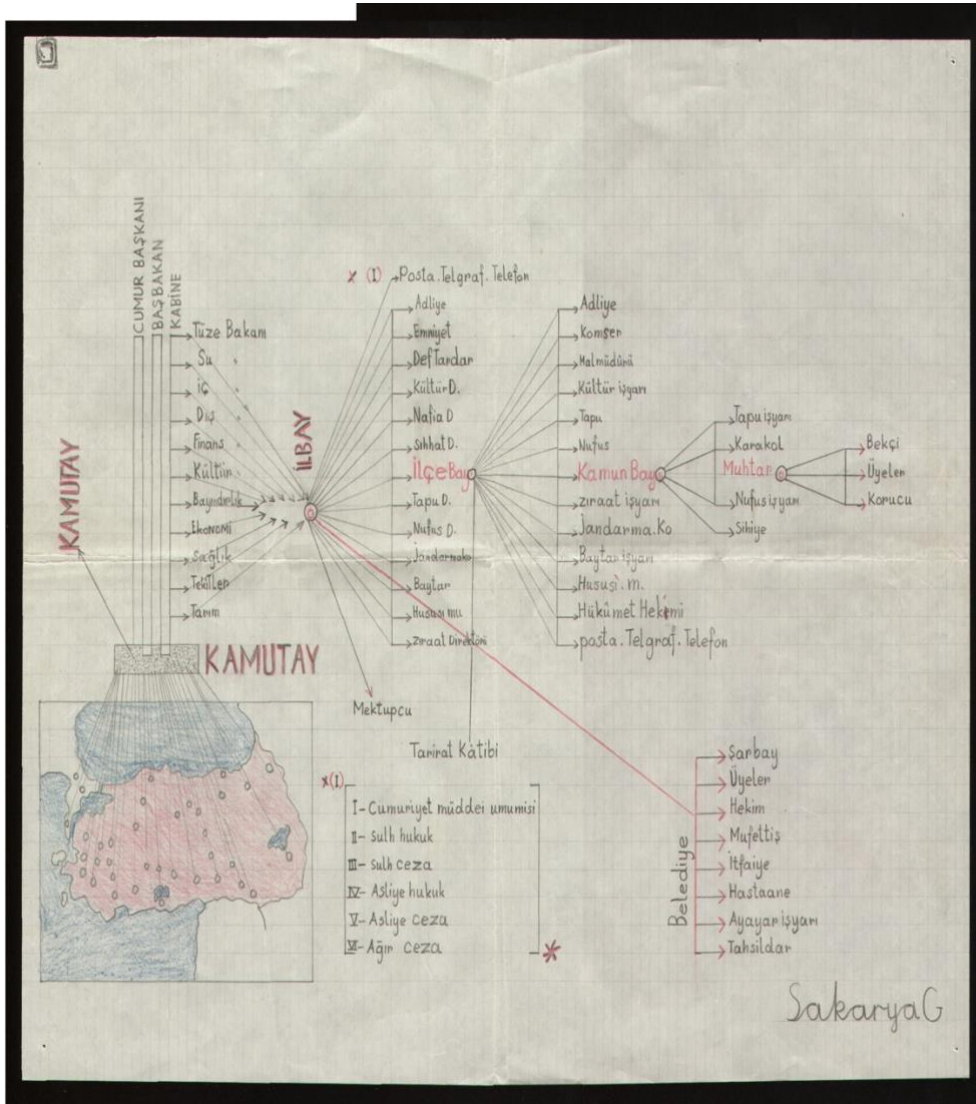 KAMUTAY
CUMUR BAŞKANI
BAŞBAKAN
KABİNE
Tüze Bakanı
Su "
İç "
Dış "
Finans "
Kültür "
Bayındırlık
EKONOMİ
Sağlık
Tekitler
Tarım
KAMUTAY
İLBAY
x (I) Posta.Telgraf.Telefon
Adliye
Emniyet
DefTardar
Kültür D.
Nafia D
Sıhhat D.
İlçeBay
Tapu D.
Nufus D.
Jandarmako
Baytar
Hususi mu
ziraat Direktörü
Mektupcu
Tarirat Kâtibi
Adliye
Komser
Malmüdürü
Kültür işyarı
Tapu
Nufus
Kamun Bay
ziraat işyarı
Jandarma.Ko
Baytar işyarı
Hususi.m.
Hükümet Hekimi
posta.Telgraf.Telefon
Tapu işyarı
Karakol
Muhtar
Nufus işyarı
Sihiye
Bekçi
Üyeler
Korucu
x(I)
I- Cumuriyet müddei umumisi
II- sulh hukuk
III- sulh ceza
IV- Asliye hukuk
V- Asliye ceza
VI- Ağır ceza
Belediye
Şarbay
Üyeler
Hekim
Mufettiş
İtfaiye
Hastaane
Ayayar işyarı
Tahsildar
Sakarya G